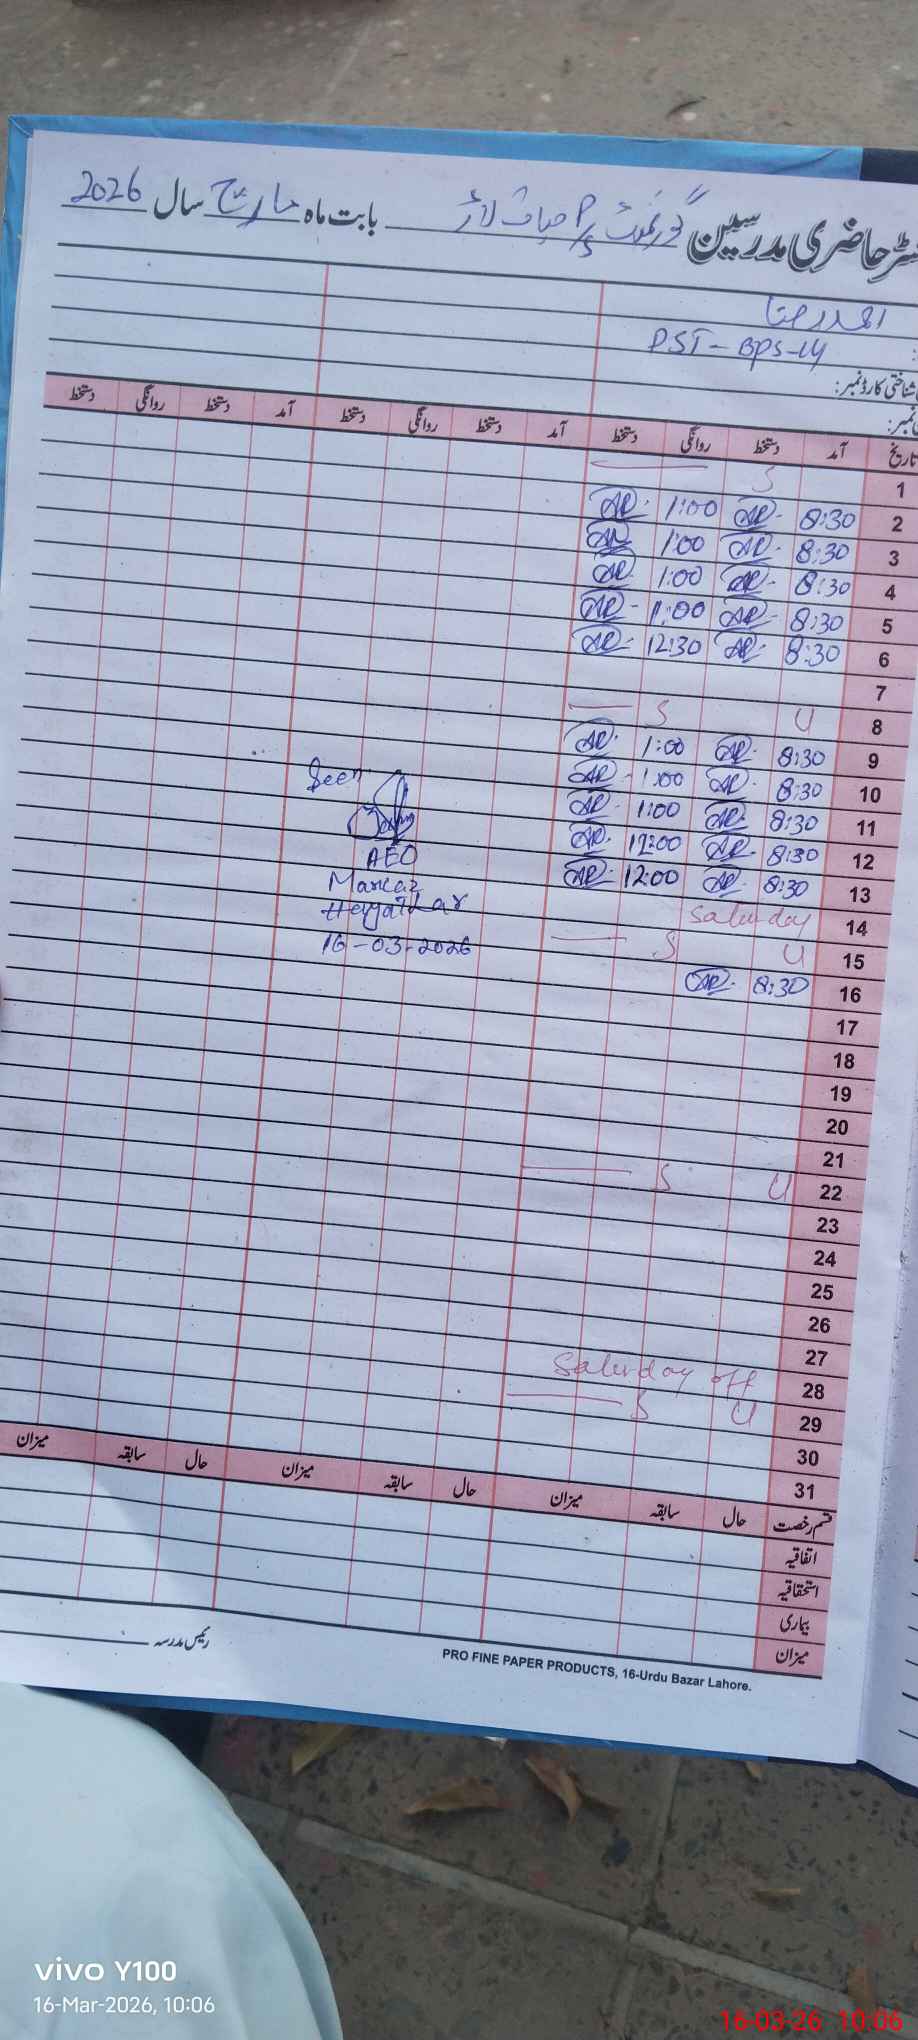 رجسٹر حاضری مدرسین گورنمنٹ P/S حیات لاڑ بابت ماہ مارچ سال 2026
احمد رضا
PST-BPS-14
شناختی کارڈ نمبر:
نمبر:
تاریخ آمد دستخط روانگی دستخط آمد دستخط روانگی دستخط آمد دستخط روانگی دستخط
1 S
2 8:30 AR. 1:00 AR.
3 8:30 AR. 1:00 AR
4 8:30 AR. 1:00 AR
5 8:30 AR. 1:00 AR
6 8:30 AR. 12:30 AR.
7
8 U S
9 8:30 AR. 1:00 AR.
10 8:30 AR. 1:00 AR
11 8:30 AR. 1:00 AR.
12 8:30 AR. 12:00 AR.
13 8:30 AR. 12:00 AR.
14 Saturday
15 U S
16 8:30 AR.
17
18
19
20
21
22 U S
23
24
25
26
27
28 Saturday off
29 U S
30
31
Seen
AEO
Markaz
Hayatlar
16-03-2026
قسم رخصت حال سابقہ میزان حال سابقہ میزان حال سابقہ میزان
اتفاقیہ
استحقاقیہ
بیماری
میزان
رئیس مدرسہ
PRO FINE PAPER PRODUCTS, 16-Urdu Bazar Lahore.
vivo Y100
16-Mar-2026, 10:06
16-03-26 10:06